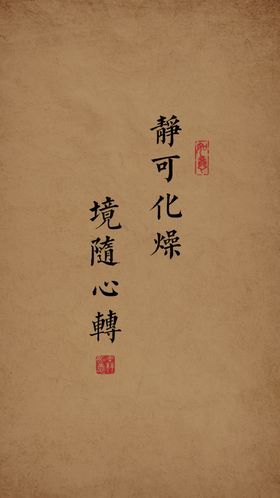 靜可化燥
境隨心轉